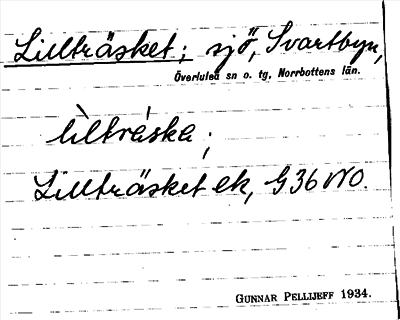 Lillträsket; sjö, Svartbyn,
Överluleå sn o. tg, Norrbottens län.
lìltráska;
Lillträsket ek, G36NO.
GUNNAR PELLIJEFF 1934.